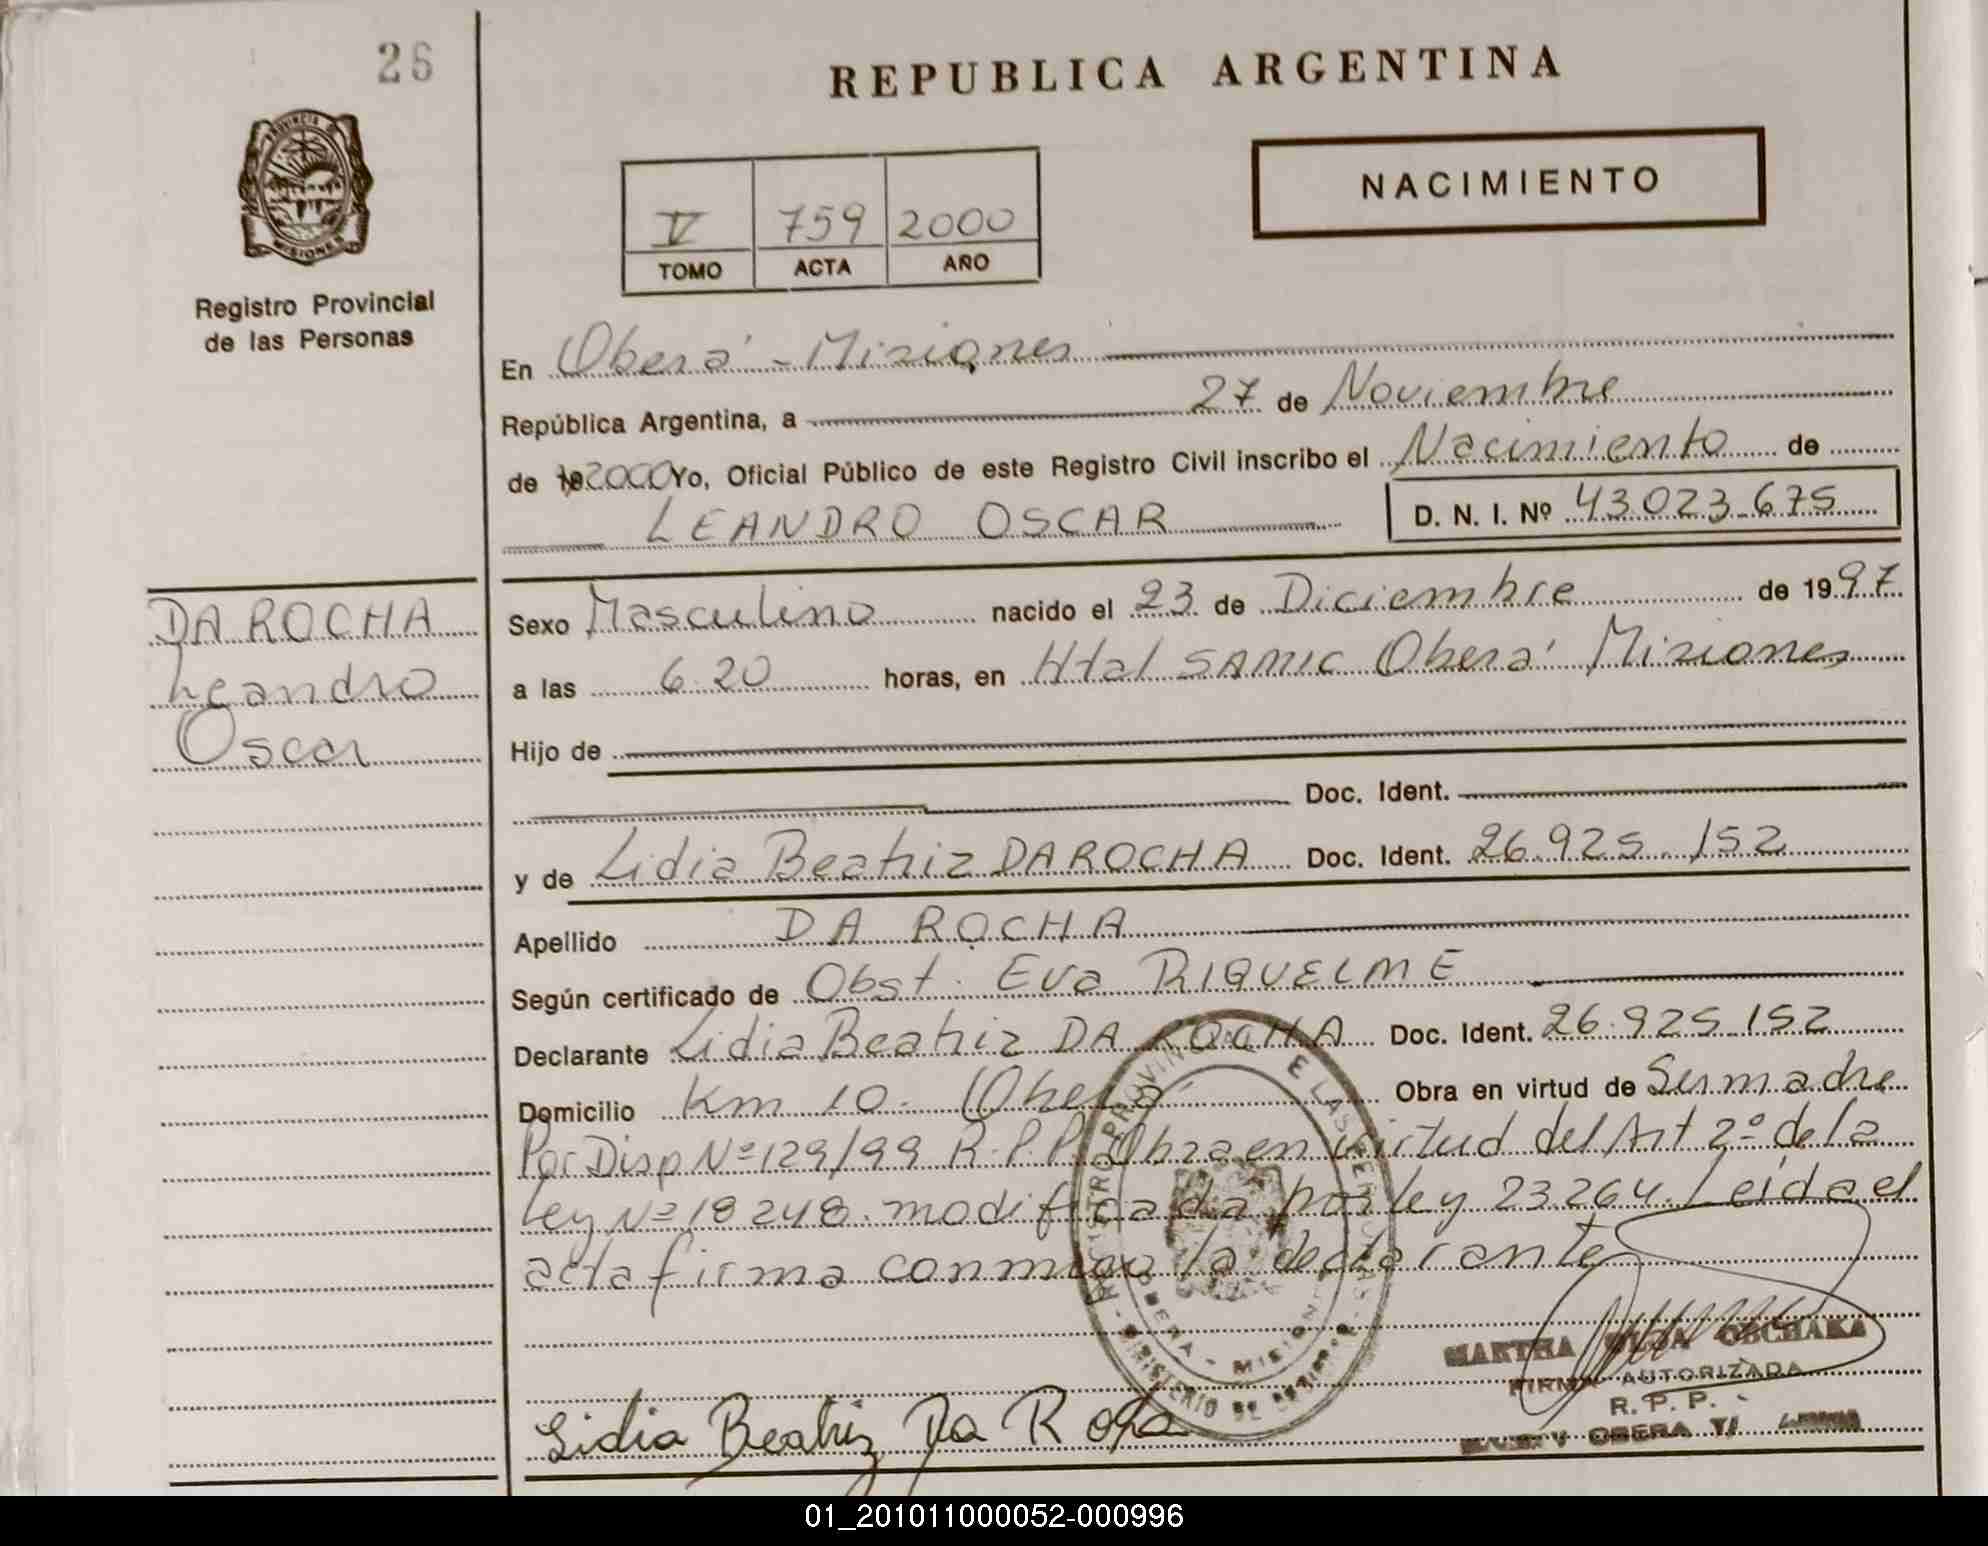 26
REPUBLICA ARGENTINA
PROVINCIA D
MISIONES
Registro Provincial
de las Personas
V 759 2000
TOMO ACTA AÑO
NACIMIENTO
En Oberá - Misiones
República Argentina, a 27 de Noviembre
de 19 2000 Yo, Oficial Público de este Registro Civil inscribo el Nacimiento de
LEANDRO OSCAR D. N. I. Nº 43023-675
DA ROCHA
Leandro
Oscar
Sexo Masculino nacido el 23 de Diciembre de 1997
a las 6.20 horas, en Htal SAMIC Oberá Misiones
Hijo de
Doc. Ident.
y de Lidia Beatriz DA ROCHA Doc. Ident. 26.925.152
Apellido DA ROCHA
Según certificado de Obst. Eva RIQUELME
Declarante Lidia Beatriz DA ROCHA Doc. Ident. 26.925.152
Domicilio Km 10. Oberá Obra en virtud de Ser madre
Por Disp Nº 129/99 R.P.P. Obra en virtud del Art 2º de la
Ley Nº 18248. modificada por ley 23.264. Leída el
acta firma conmigo la declarante
MARTHA OBCHAKA
FIRMA AUTORIZADA
R. P. P.
OBERA
OBERA - MISIONES
Lidia Beatriz Da Rocha
01_201011000052-000996